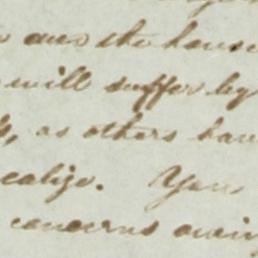 the house
will suffer by
as others hav
ealize. You
concerns owin